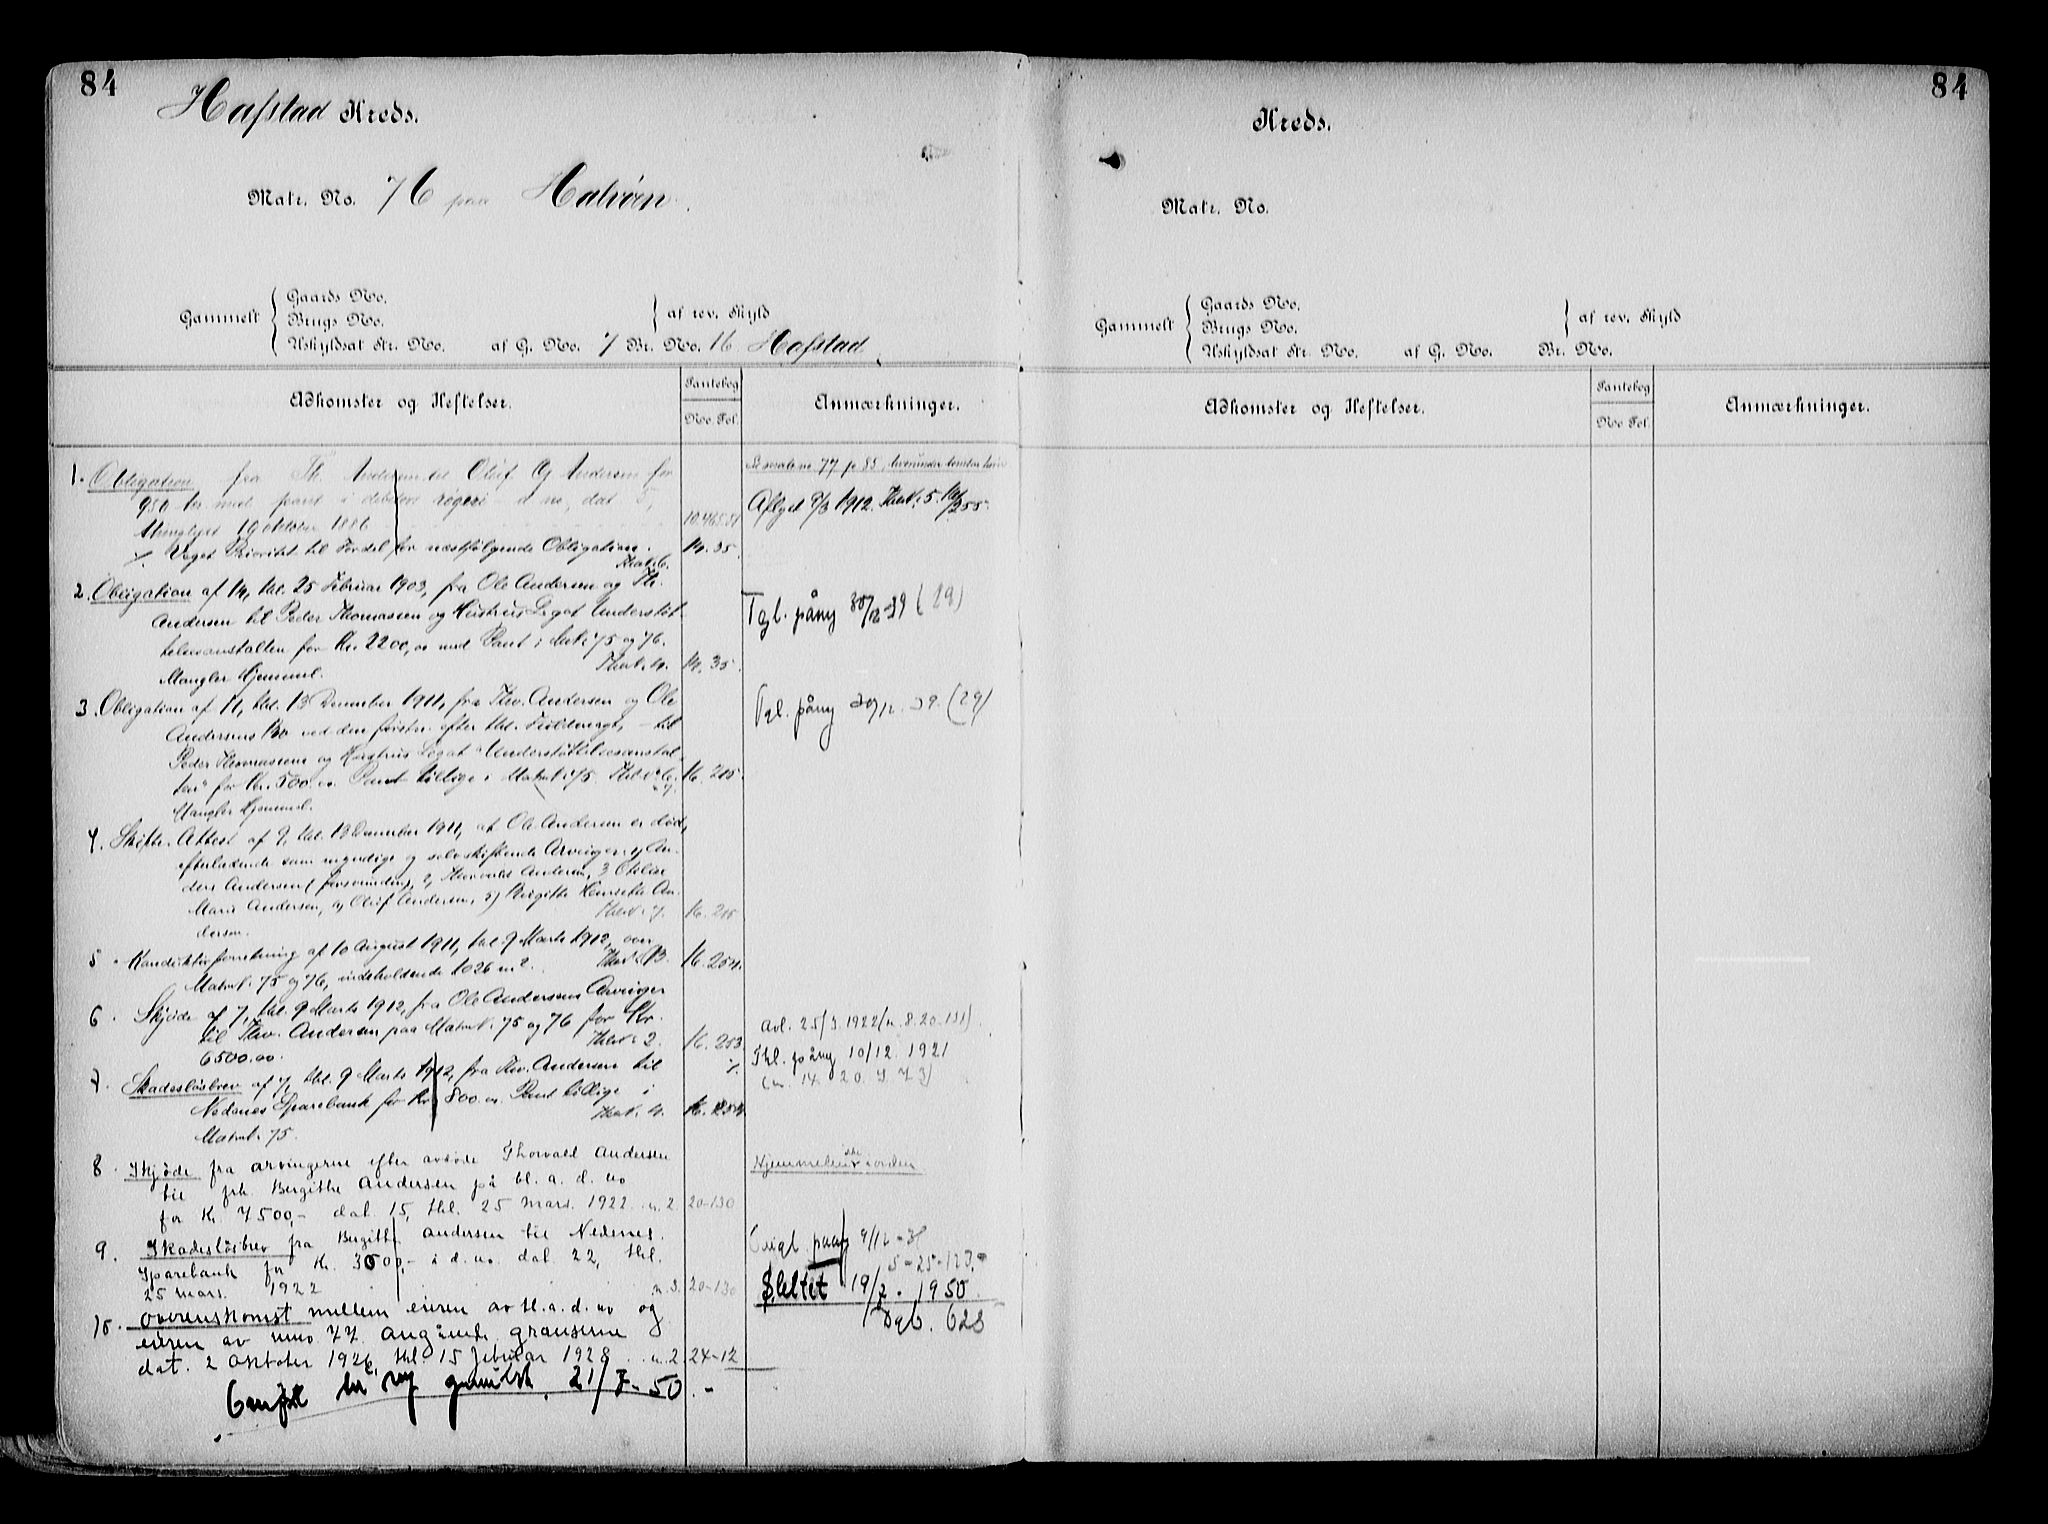 84
Hafstad Kreds.
Matr. No. 76 paa Halvøen
Gammelt
Gaards No.
Brugs No.
af rev. Skyld
Uskyldsat Str. No. af G. No. 7 Br. No. 16 Hafstad
Adkomster og Heftelser.
Pantebog
No. Fol.
Anmærkninger.
1. Obligation fra Th. Andersen til Oluf Andersen for
950 kr med pant i
thinglyst 19 oktober 1886
10.465.51
Aflyst 9/3 1912.
Veget Prioritet til Fordel for næstfølgende Obligation.
14.35.
2. Obligation af 14, thl. 25 Februar 1903, fra Ole Andersen og Th.
Andersen til Peder Thomassen og Hustrus Legat Understøt-
telsesanstalten for Kr. 2200,00 med Pant i Mat. 75 og 76.
Mangler Hjemmel.
14. 35.
Tgl. påny 30/12-39 (29)
3. Obligation af 11, thl. 13 December 1911, fra Thv. Andersen og Ole
Andersens Bo ved den første efter thl. Fuldmagt, - til
Peder Thomassens og Hustrus Legat "Understøttelsesanstal-
ten" for Kr. 500.00. Pant tillige i Matr. 75.
Mangler Hjemmel.
16. 215.
Tgl. påny 30/12. 39. (29)
4. Skifte-Attest af 9, thl. 13 December 1911, at Ole Andersen er død,
efterladende som myndige og selvskiftende Arvinger: 1) An-
ders Andersen (forsvunden), 2, Thorvald Andersen, 3 Otilie
Marie Andersen, 4) Oluf Andersen, 5) Birgitte Henriette An-
dersen.
16. 215
5. Konduktørforretning af 10 August 1911, thl. 9 Marts 1912, over
Matr. 75 og 76, indeholdende 1026 m².
16. 254.
6. Skjøde af 7, thl. 9 Marts 1912, fra Ole Andersens Arvinger
til Thv. Andersen paa Matr. 75 og 76 for Kr.
6500.00.
16. 253
7. Skadesløsbrev af 7, thl. 9 Marts 1912, fra Thv. Andersen til
Nedenes Sparebank for Kr. 800.00. Pant tillige i
Matr. 75.
16. 254.
Avl. 25/3. 1922 (n. 8. 20-131).
Thl. påny 10/12. 1921
(n. 14. 20. S. 73)
8. Skjøde fra arvingerne efter avdøde Thorvald Andersen
til frk. Bergithe Andersen på bl. a. d. no
for Kr. 7500,- dat. 15, thl. 25 mars. 1922. n. 2.
20-130
Hjemmelen ikke i orden
9. Skadesløsbrev fra Bergithe Andersen til Nedenes
Sparebank for Kr. 3000,- i d. no dat 22, thl.
25 mars. 1922 n. 3.
20-130
9/12-3
5-25-123.
Slettet 19/7. 1950.
Dgb. 628
10. Overenskomst mellem eieren av bl. a. d. no og
eieren av mno. 77. angående grænserne
dat. 2 oktober 1926, thl. 15 februar 1928. n. 2.
24-12
21/7-50
84
Kreds.
Matr. No.
Gammelt
Gaards No.
Brugs No.
af rev. Skyld
Uskyldsat Str. No. af G. No. Br. No.
Adkomster og Heftelser.
Pantebog
No. Fol.
Anmærkninger.